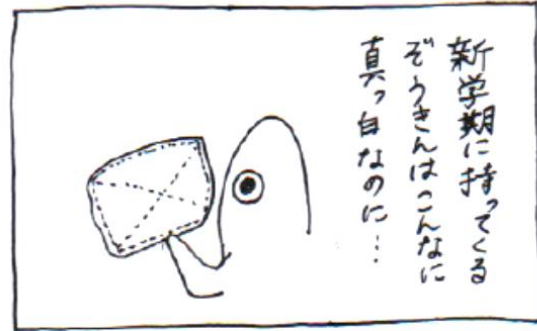 新学期に持ってくる
ぞうきんはこんなに
真っ白なのに…